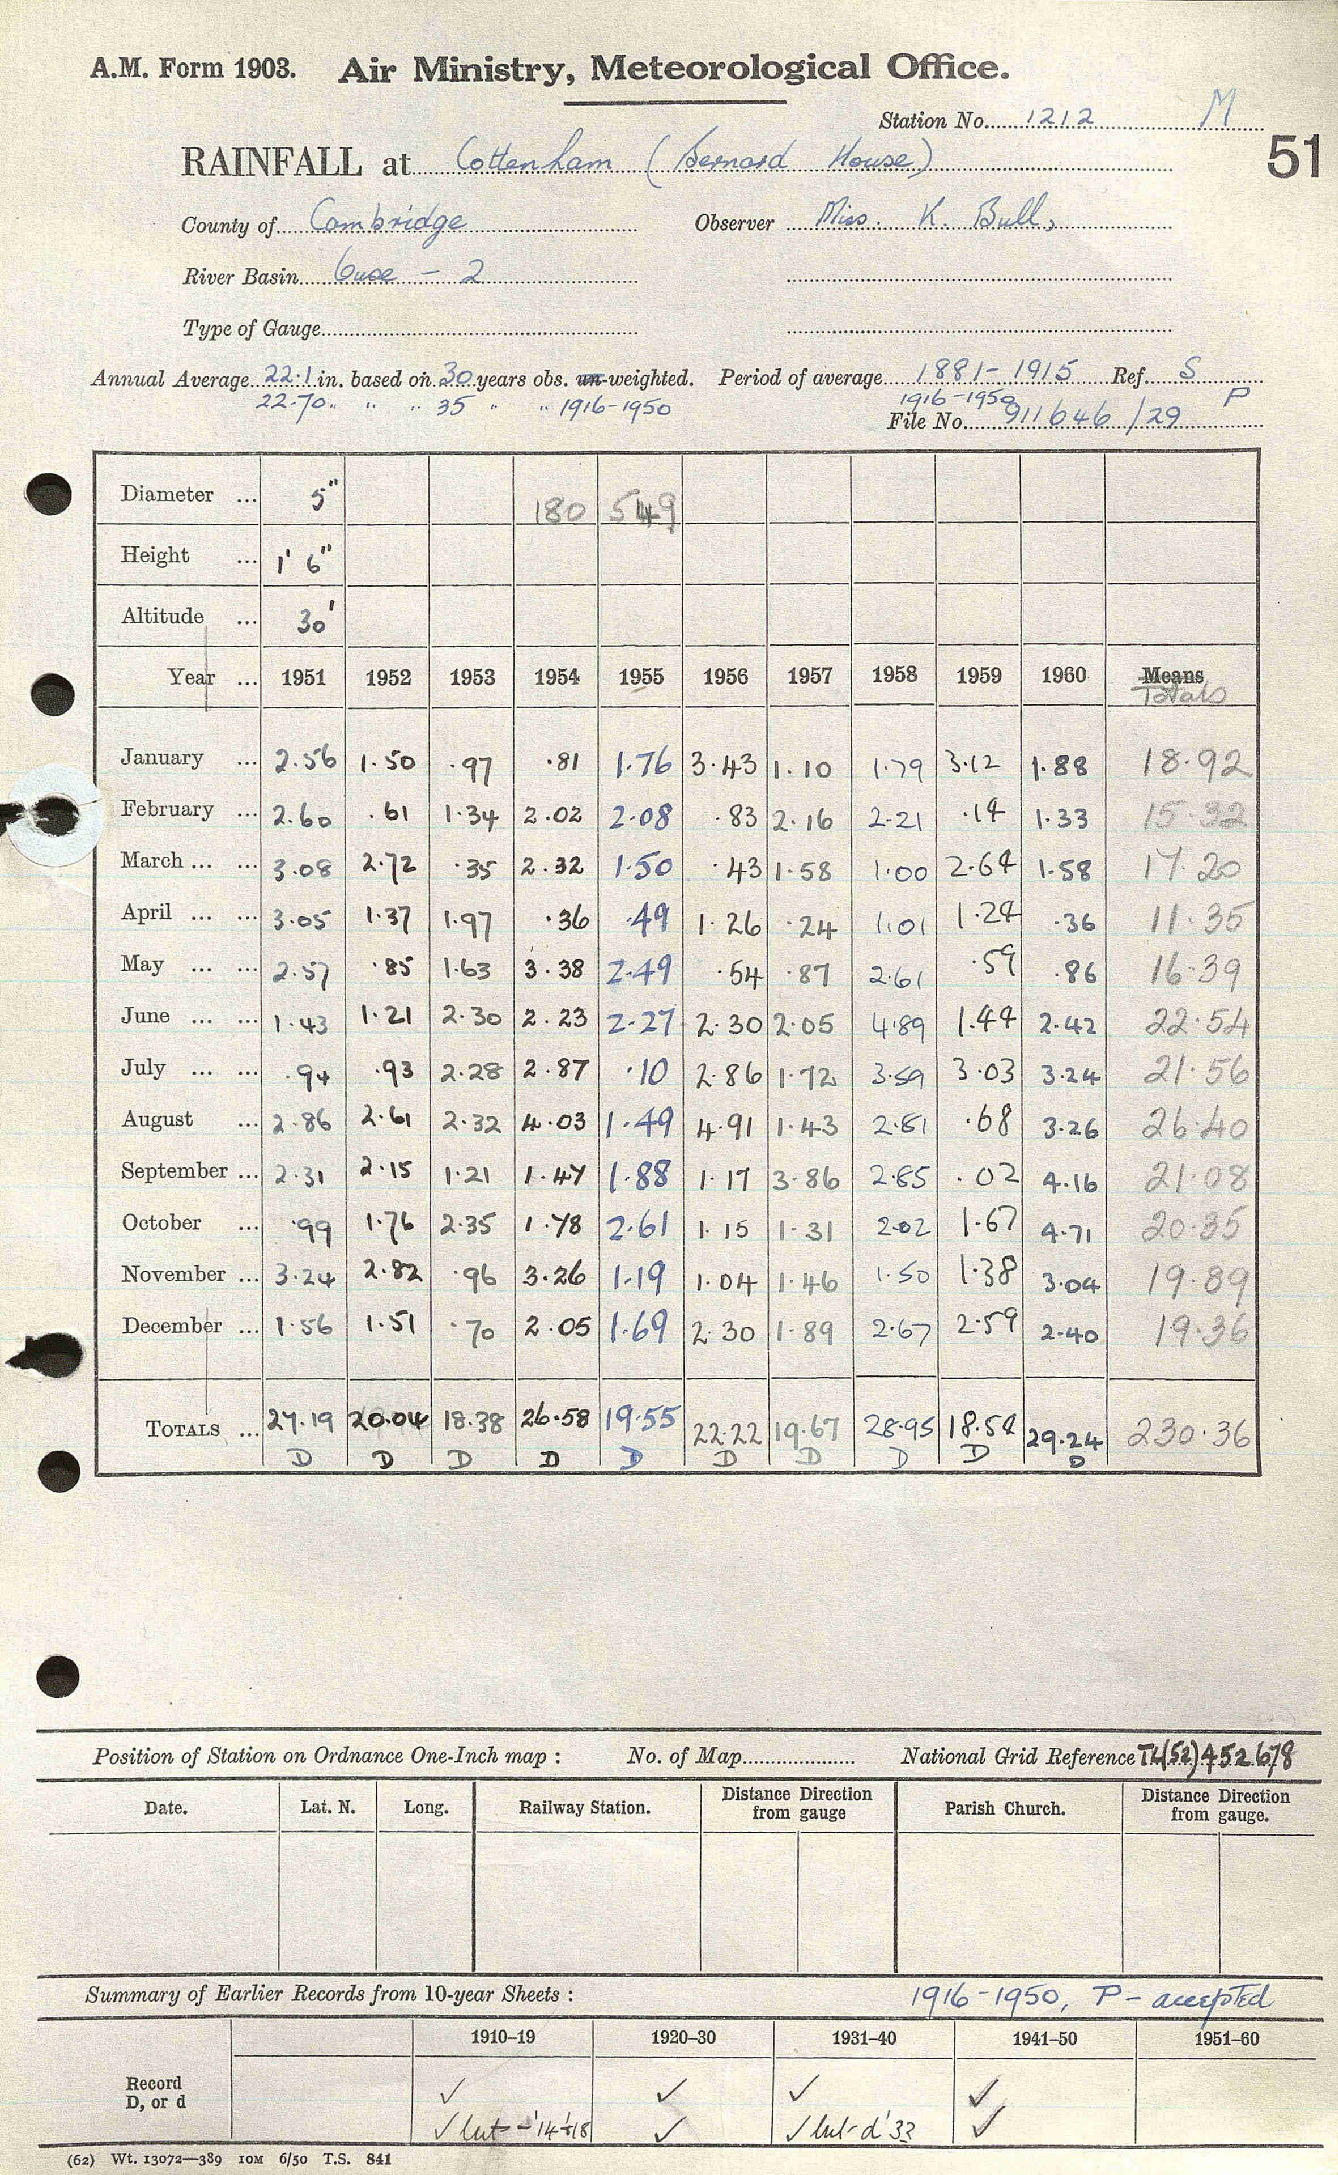 A.M. Form 1903. Air Ministry, Meteorological Office.
Station No. 1212 M
51
RAINFALL at Cottenham (Bernard House)
County of Cambridge Observer Miss. K. Bull,
River Basin Ouse - 2
Type of Gauge
Annual Average 22.1 in. based on 30 years obs. un-weighted. Period of average 1881-1915 Ref. S
22.70 " " " 35 " " 1916-1950 1916-1950 P
File No. 911646/29
Diameter ... 5" 180 549
Height ... 1' 6"
Altitude ... 30'
Year ... 1951 1952 1953 1954 1955 1956 1957 1958 1959 1960 Means Totals
January ... 2.56 1.50 .97 .81 1.76 3.43 1.10 1.79 3.12 1.88 18.92
February ... 2.60 .61 1.34 2.02 2.08 .83 2.16 2.21 .14 1.33 15.32
March ... ... 3.08 2.72 .35 2.32 1.50 .43 1.58 1.00 2.64 1.58 17.20
April ... ... 3.05 1.37 1.97 .36 .49 1.26 .24 1.01 1.24 .36 11.35
May ... ... 2.57 .85 1.63 3.38 2.49 .54 .87 2.61 .59 .86 16.39
June ... ... 1.43 1.21 2.30 2.23 2.27 2.30 2.05 4.89 1.44 2.42 22.54
July ... ... .94 .93 2.28 2.87 .10 2.86 1.72 3.59 3.03 3.24 21.56
August ... 2.86 2.61 2.32 4.03 1.49 4.91 1.43 2.81 .68 3.26 26.40
September ... 2.31 2.15 1.21 1.47 1.88 1.17 3.86 2.85 .02 4.16 21.08
October ... .99 1.76 2.35 1.78 2.61 1.15 1.31 2.02 1.67 4.71 20.35
November ... 3.24 2.82 .96 3.26 1.19 1.04 1.46 1.50 1.38 3.04 19.89
December ... 1.56 1.51 .70 2.05 1.69 2.30 1.89 2.67 2.59 2.40 19.36
TOTALS ... 27.19 20.04 18.38 26.58 19.55 22.22 19.67 28.95 18.54 29.24 230.36
D D D D D D D D D D
Position of Station on Ordnance One-Inch map : No. of Map National Grid Reference TL(52) 452678
Date. Lat. N. Long. Railway Station. Distance Direction from gauge Parish Church. Distance Direction from gauge.
Summary of Earlier Records from 10-year Sheets : 1916-1950, P - accepted
1910-19 1920-30 1931-40 1941-50 1951-60
Record ✓ ✓ ✓ ✓
D, or d
✓ but - '14-'18 ✓ ✓ but d '33 ✓
(62) Wt. 13072—389 10M 6/50 T.S. 841